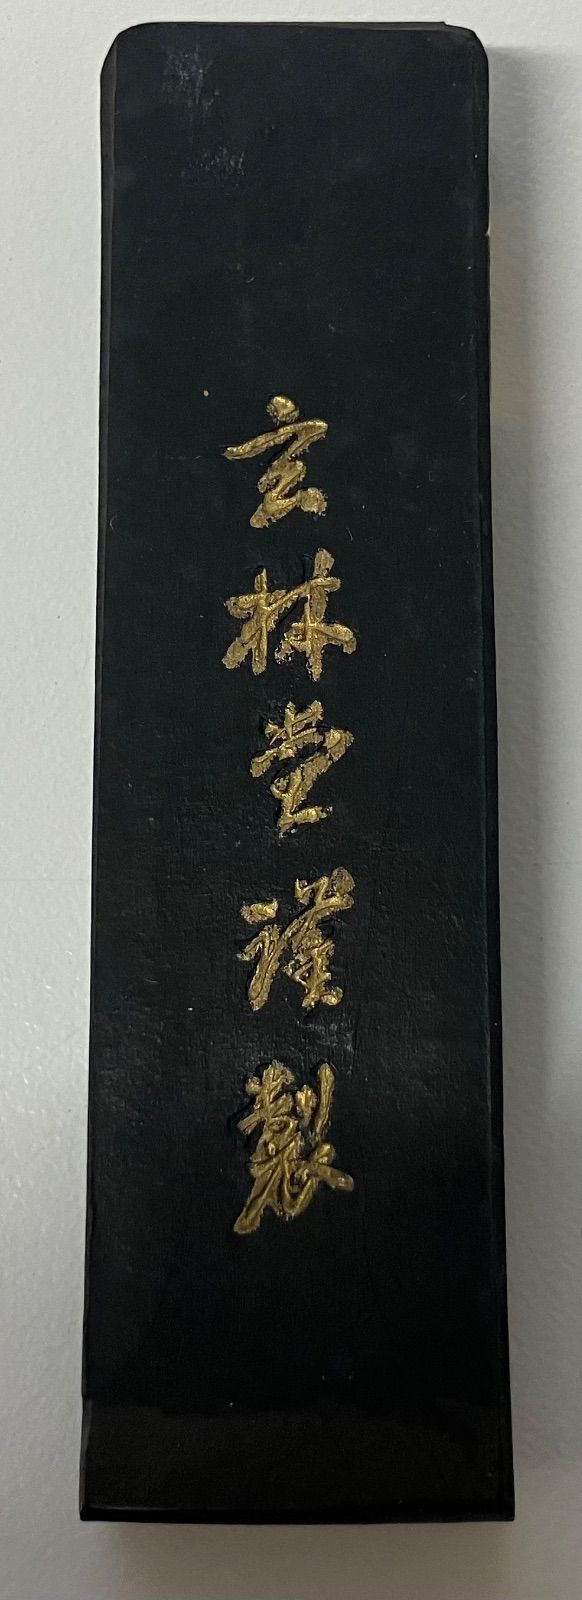 玄林堂謹製